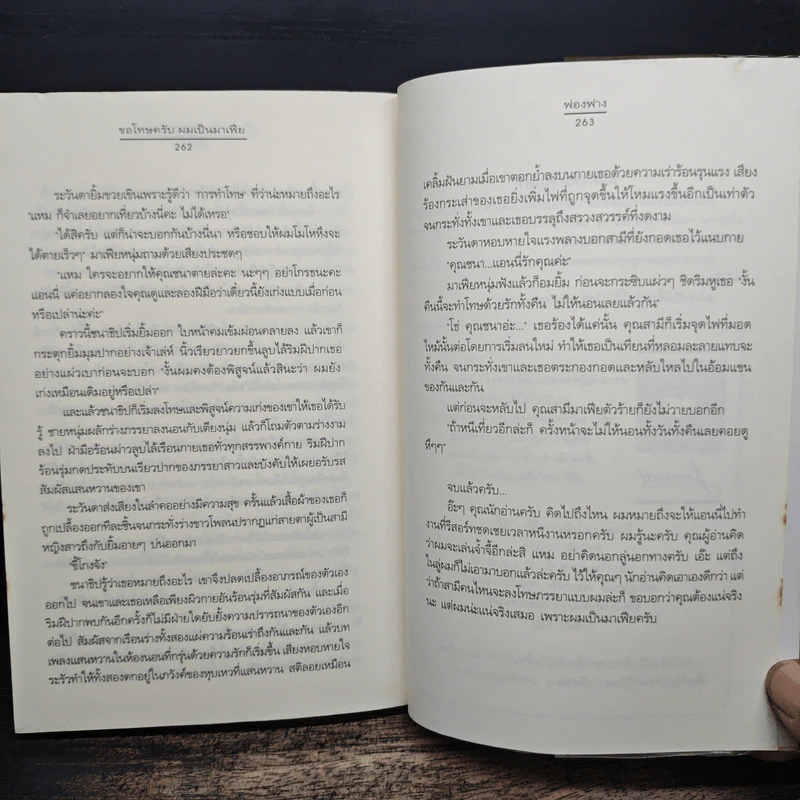 ขอโทษครับ ผมเป็นมาเฟีย
262
ระวันดายิ้มขวยเขินเพราะรู้ดีว่า 'การทำโทษ' ที่ว่าน่ะหมายถึงอะไร
"แหม ก็จำเลยอยากเที่ยวบ้างนี่คะ ไม่ได้เหรอ"
"ได้สิครับ แต่ก็น่าจะบอกกันบ้างนี่นา หรือชอบให้ผมโมโหหึงจะ
ได้ตายเร็วๆ" มาเฟียหนุ่มถามด้วยเสียงประชดๆ
"แหม ใครจะอยากให้คุณชนาตายล่ะคะ นะๆๆ อย่าโกรธนะคะ
แอนนี่ แค่อยากลองใจคุณดูและลองฝีมือว่าเดี๋ยวนี้ยังเก่งแบบเมื่อก่อน
หรือเปล่าน่ะค่ะ"
คราวนี้ชนาธิปเริ่มยิ้มออก ใบหน้าคมเข้มผ่อนคลายลง แล้วเขาก็
กระตุกยิ้มมุมปากอย่างเจ้าเล่ห์ นิ้วเรียวยาวยกขึ้นลูบไล้ริมฝีปากเธอ
อย่างแผ่วเบาก่อนจะบอก "งั้นผมคงต้องพิสูจน์แล้วสินะว่า ผมยัง
เก่งเหมือนเดิมอยู่หรือเปล่า"
และแล้วชนาธิปก็เริ่มลงโทษและพิสูจน์ความเก่งของเขาให้เธอได้รับ
รู้ ชายหนุ่มผลักร่างภรรยาลงนอนกับเตียงนุ่ม แล้วก็โถมตัวตามร่างงาม
ลงไป ฝ่ามือร้อนผ่าวลูบไล้เรือนกายเธอทั่วทุกสรรพางค์กาย ริมฝีปาก
ร้อนรุ่มกดประทับบนเรียวปากของภรรยาสาวและบังคับให้เผยอรับรส
สัมผัสแสนหวานของเขา
ระวันดาส่งเสียงในลำคออย่างมีความสุข ครั้นแล้วเสื้อผ้าของเธอก็
ถูกเปลื้องออกทีละชิ้นจนกระทั่งร่างขาวโพลนปรากฏแก่สายตาผู้เป็นสามี
หญิงสาวถึงกับยิ้มอายๆ บ่นออกมา
"ขี้โกงจัง"
ชนาธิปรู้ว่าเธอหมายถึงอะไร เขาจึงปลดเปลื้องอาภรณ์ของตัวเอง
ออกไป จนเขาและเธอเหลือเพียงผิวกายอันร้อนรุ่มที่สัมผัสกัน และเมื่อ
ริมฝีปากพบกันอีกครั้งก็ไม่มีฝ่ายใดยับยั้งความปรารถนาของตัวเองอีก
ต่อไป สัมผัสจากเรือนร่างทั้งสองแผ่ความร้อนเร่าถึงกันและกัน แล้วบท
เพลงแสนหวานในห้องนอนที่กรุ่นด้วยความรักก็เริ่มขึ้น เสียงหอบหายใจ
ระรัวทำให้ทั้งสองตกอยู่ในภวังค์ของหุบเหวที่แสนหวาน สติลอยเหมือน
ฟองฟาง
263
เคลิ้มฝันยามเมื่อเขาตอกย้ำลงบนกายเธอด้วยความเร่าร้อนรุนแรง เสียง
ร้องกระเส่าของเธอยิ่งเพิ่มไฟที่ถูกจุดขึ้นให้โหมแรงขึ้นอีกเป็นเท่าตัว
จนกระทั่งทั้งเขาและเธอบรรลุถึงสรวงสวรรค์ที่งดงาม
ระวันดาหอบหายใจแรงพลางบอกสามีที่ยังกอดเธอไว้แนบกาย
"คุณชนา...แอนนี่รักคุณค่ะ"
มาเฟียหนุ่มฟังแล้วก็อมยิ้ม ก่อนจะกระซิบแผ่วๆ ชิดริมหูเธอ "งั้น
คืนนี้จะทำโทษด้วยรักทั้งคืน ไม่ให้นอนเลยแล้วกัน"
"โธ่ คุณชนาอ่ะ..." เธอร้องได้แค่นั้น คุณสามีก็เริ่มจุดไฟที่มอด
ไหม้นั้นต่อโดยการเริ่มลนใหม่ ทำให้เธอเป็นเทียนที่หลอมละลายแทบจะ
ทั้งคืน จนกระทั่งเขาและเธอตระกองกอดและหลับใหลไปในอ้อมแขน
ของกันและกัน
แต่ก่อนจะหลับไป คุณสามีมาเฟียตัวร้ายก็ยังไม่วายบอกอีก
"ถ้าหนีเที่ยวอีกล่ะก็ ครั้งหน้าจะไม่ให้นอนทั้งวันทั้งคืนเลยคอยดู
หึๆๆ"
จบแล้วครับ...
อ๊ะๆ คุณนักอ่านครับ คิดไปถึงไหน ผมหมายถึงจะให้แอนนี่ไปทำ
งานที่รีสอร์ทชดเชยเวลาหนีงานหรอกครับ ผมรู้นะครับ คุณผู้อ่านคิด
ว่าผมจะเล่นจ้ำจี้อีกล่ะสิ แหม อย่าคิดนอกลู่นอกทางครับ เอ๊ะ แต่ถึง
ในลู่ผมก็ไม่เอามาบอกแล้วล่ะครับ ไว้ให้คุณๆ นักอ่านคิดเอาเองดีกว่า แต่
ว่าถ้าสามีคนไหนจะลงโทษภรรยาแบบผมล่ะก็ ขอบอกว่าคุณต้องแน่จริง
นะ แต่ผมน่ะแน่จริงเสมอ เพราะผมเป็นมาเฟียครับ